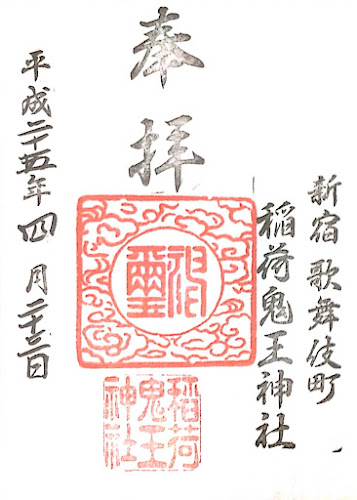 奉拝
新宿歌舞伎町
稲荷鬼王神社
平成二十五年四月二十三日
稲荷
鬼王
神社